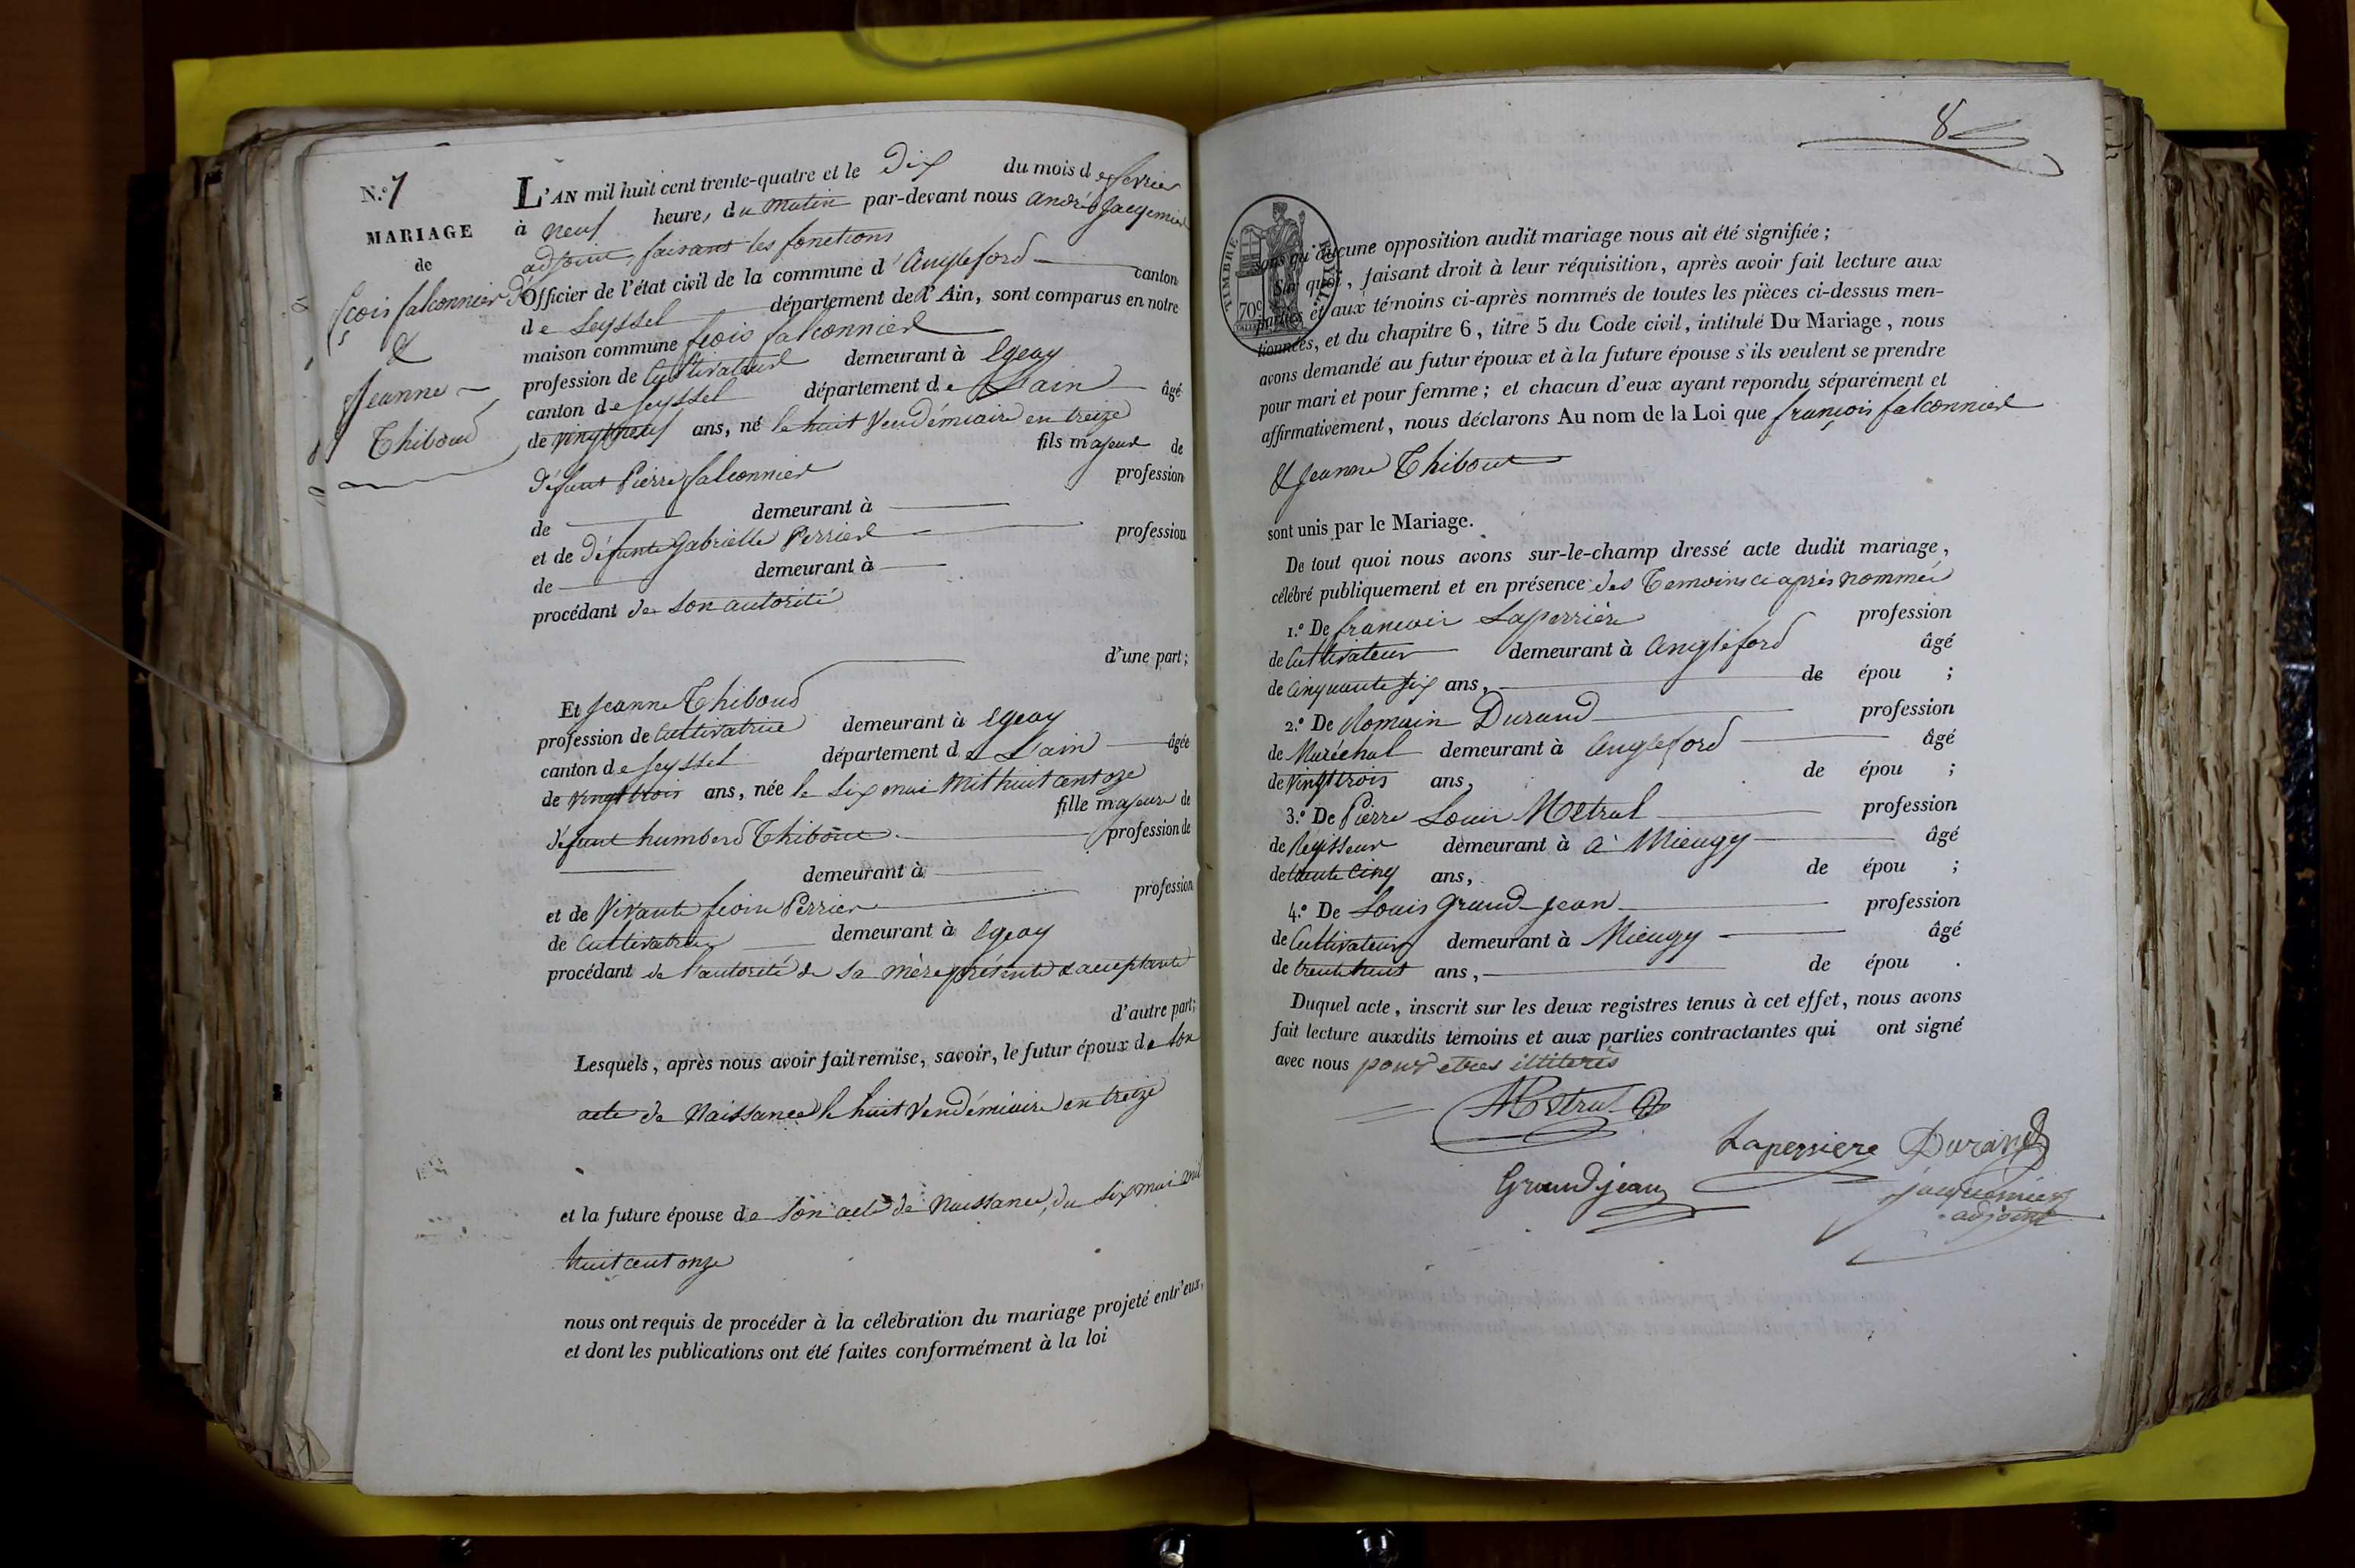 N.º 7
MARIAGE
de
fçois falconnier
&
Jeanne
Thiboud
L'AN mil huit cent trente-quatre et le Dix du mois de fevrier
à neuf heures du matin par-devant nous andré Jacquemier
adjoint, faisant les fonctions
d'Officier de l'état civil de la commune d'Angleford canton
de Seyssel département de l'Ain, sont comparus en notre
maison commune fcois falconnier
profession de Cultivateur demeurant à Egeay
canton de Seyssel département de L'ain âgé
de vingtneuf ans, né le huit Vendémiaire en treize
fils majeur de
défunt Pierre falconnier profession
de demeurant à
et de défunte Gabrielle Perrier profession
de demeurant à
procédant de son autorité
d'une part;
Et Jeanne Thiboud
profession de Cultivatrice demeurant à Egeay
canton de Seyssel département de L'ain âgée
de vingttrois ans, née le six mai mil huit cent oze
fille majeure de
défunt humberd Thibout profession de
demeurant à
et de Vivante Perrier profession
de Cultivatrice demeurant à Egeay
procédant de l'autorité de sa mère présente & acceptante
d'autre part;
Lesquels, après nous avoir fait remise, savoir, le futur époux de son
acte de Naissance le huit Vendémiaire en treize
et la future épouse de son acte de Naissance, du six mai mil
huit cent onze
nous ont requis de procéder à la célébration du mariage projeté entr'eux,
et dont les publications ont été faites conformément à la loi
8
TIMBRE ROYAL
70c
sans qu'aucune opposition audit mariage nous ait été signifiée;
Sur quoi, faisant droit à leur réquisition, après avoir fait lecture aux
parties et aux témoins ci-après nommés de toutes les pièces ci-dessus men-
tionnées, et du chapitre 6, titre 5 du Code civil, intitulé Du Mariage, nous
avons demandé au futur époux et à la future épouse s'ils veulent se prendre
pour mari et pour femme; et chacun d'eux ayant repondu séparément et
affirmativement, nous déclarons Au nom de la Loi que françois falconnier
& Jeanne Thibout
sont unis par le Mariage.
De tout quoi nous avons sur-le-champ dressé acte dudit mariage,
célébré publiquement et en présence des Temoins ci après nommée
1.º De francois Laperrière profession
de Cultivateur demeurant à Angleford âgé
de Cinquante six ans, de épou ;
2.º De Romain Durand profession
de Maréchal demeurant à Angleford âgé
de vingttrois ans, de épou ;
3.º De Pierre Louis Métral profession
de Régisseur demeurant à à Mieugy âgé
de trente cinq ans, de épou ;
4.º De Louis Grand-Jean profession
de Cultivateur demeurant à Mieugy âgé
de trente huit ans, de épou .
Duquel acte, inscrit sur les deux registres tenus à cet effet, nous avons
fait lecture auxdits témoins et aux parties contractantes qui ont signé
avec nous pour etres illiterés
Metral
Laperriere Durand
Grandjean
jacquemier
adjoint